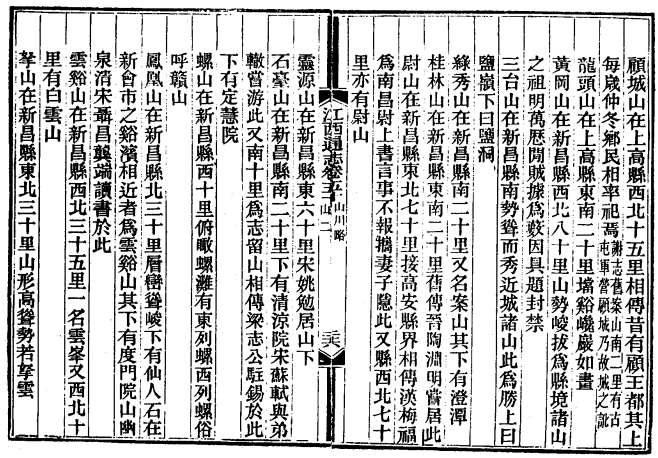 顧城山在上高縣西北十五里相傳昔有顧王都其上
每歲仲冬鄉民相率祀焉謝志舊案山南二里有古屯軍營顧城乃故城之訛
龍頭山在上高縣東南二十里磵谿巉巖如畫
黃岡山在新昌縣西北八十里山勢峻拔爲縣境諸山
之祖明萬歷閒賊據爲藪因具題封禁
三台山在新昌縣南勢聳而秀近城諸山此爲勝上曰
鹽嶺下曰鹽洞
綠秀山在新昌縣南二十里又名案山其下有澄潭
桂林山在新昌縣東南二十里舊傳晉陶淵明嘗居此
尉山在新昌縣東北七十里接高安縣界相傳漢梅福
爲南昌尉上書言事不報攜妻子隱此又縣西北七十
里亦有尉山
江西通志卷五十 山川略 山二 三六
靈源山在新昌縣東六十里宋姚勉居山下
石臺山在新昌縣南二十里下有清涼院宋蘇軾與弟
轍嘗游此又南十里爲志留山相傳梁志公駐錫於此
下有定慧院
螺山在新昌縣西十里俯瞰螺灘有東列螺西列螺俗
呼贛山
鳳凰山在新昌縣北三十里層巒聳峻下有仙人石在
新會市之谿濱相近者爲雲谿山其下有度門院山幽
泉消宋聶昌龔端讀書於此
雲谿山在新昌縣西北三十五里一名雲峯又西北十
里有白雲山
拏山在新昌縣東北三十里山形高聳勢若拏雲